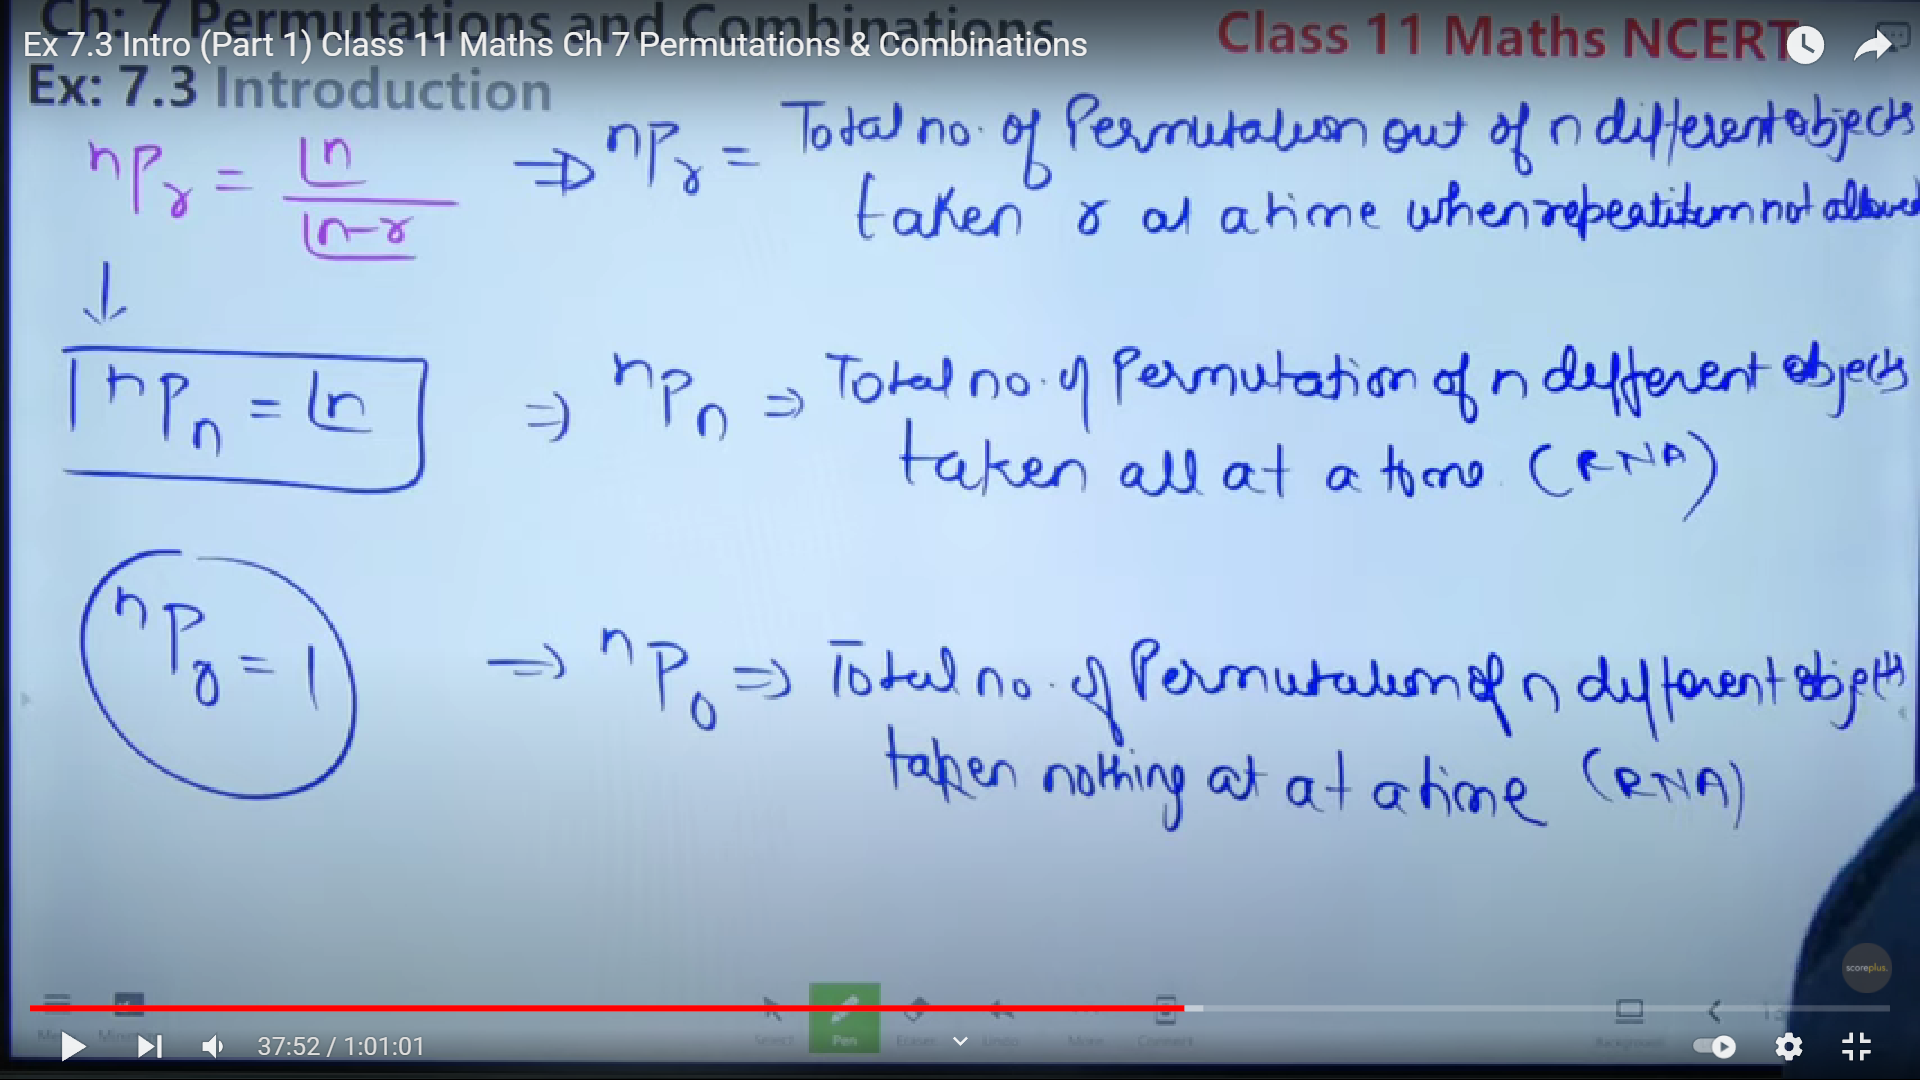 Ch: 7 Permutations and Combinations
Class 11 Maths NCERT
Ex 7.3 Intro (Part 1) Class 11 Maths Ch 7 Permutations & Combinations
Ex: 7.3 Introduction
nPr = |n / |n-r ⇒ nPr = Total no. of Permutation out of n different objects
taken r at a time when repeatition not allowed
↓
nPn = |n ⇒ nPn ⇒ Total no. of Permutation of n different objects
taken all at a time (RNA)
nP0 = 1 ⇒ nP0 ⇒ Total no. of Permutation of n different objects
taken nothing at at a time (RNA)
scoreplus.
Select
Pen
Eraser
Undo
More
Comment
Background
37:52 / 1:01:01